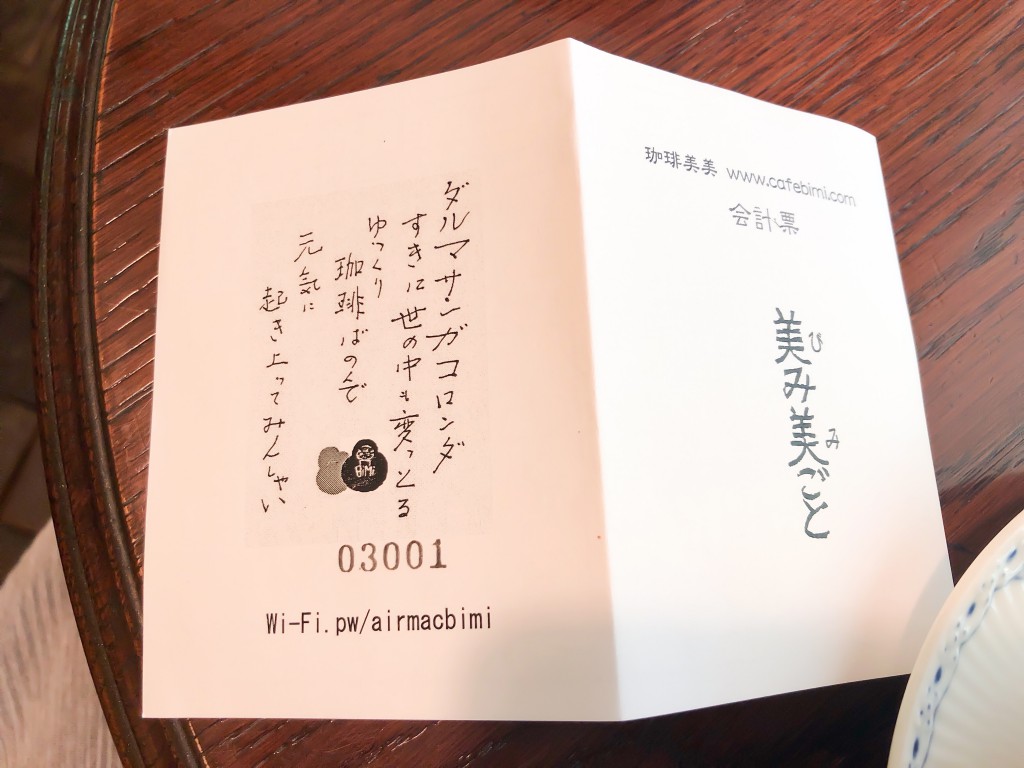 ダルマサンガコロンダ
すきに世の中も変っとる
ゆっくり
珈琲ばのんで
元気に
起き上ってみんしゃい
BiMi
03001
Wi-Fi.pw/airmacbimi
珈琲美美 www.cafebimi.com
会計票
美み美ごと
び
み